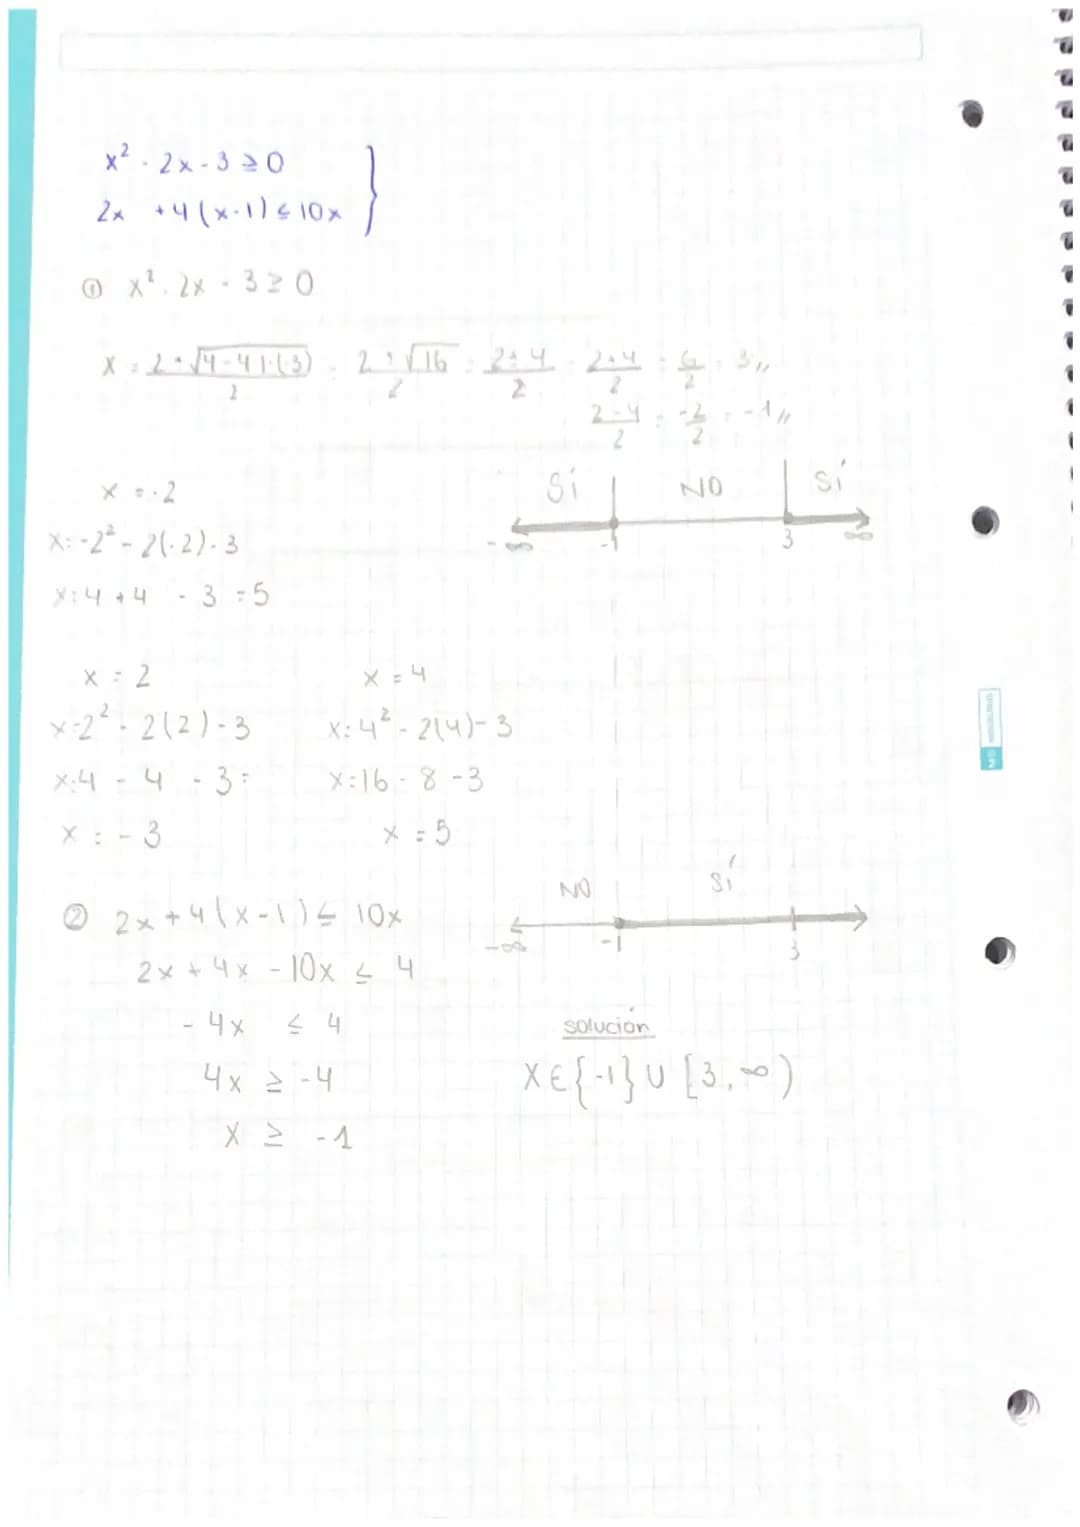 x² - 2x - 3 ≥ 0
2x + 4(x-1) ≤ 10x }
① x² - 2x - 3 ≥ 0
x = 2 ± √4-4·1·(-3) / 2 = 2 ± √16 / 2 = 2 ± 4 / 2 = 2+4 / 2 = 6 / 2 = 3,,
2-4 / 2 = -2 / 2 = -1,,
Sí NO Sí
-∞ -1 3 ∞
x = -2
x = -2² - 2(-2) - 3
x = 4 + 4 - 3 = 5
x = 2
x = 2² - 2(2) - 3
x = 4 - 4 - 3 =
x = -3
x = 4
x = 4² - 2(4) - 3
x = 16 - 8 - 3
x = 5
② 2x + 4(x-1) ≤ 10x
2x + 4x - 10x ≤ 4
-4x ≤ 4
4x ≥ -4
x ≥ -1
NO Sí
-∞ -1 3
solución
X ∈ {-1} ∪ [3, ∞)